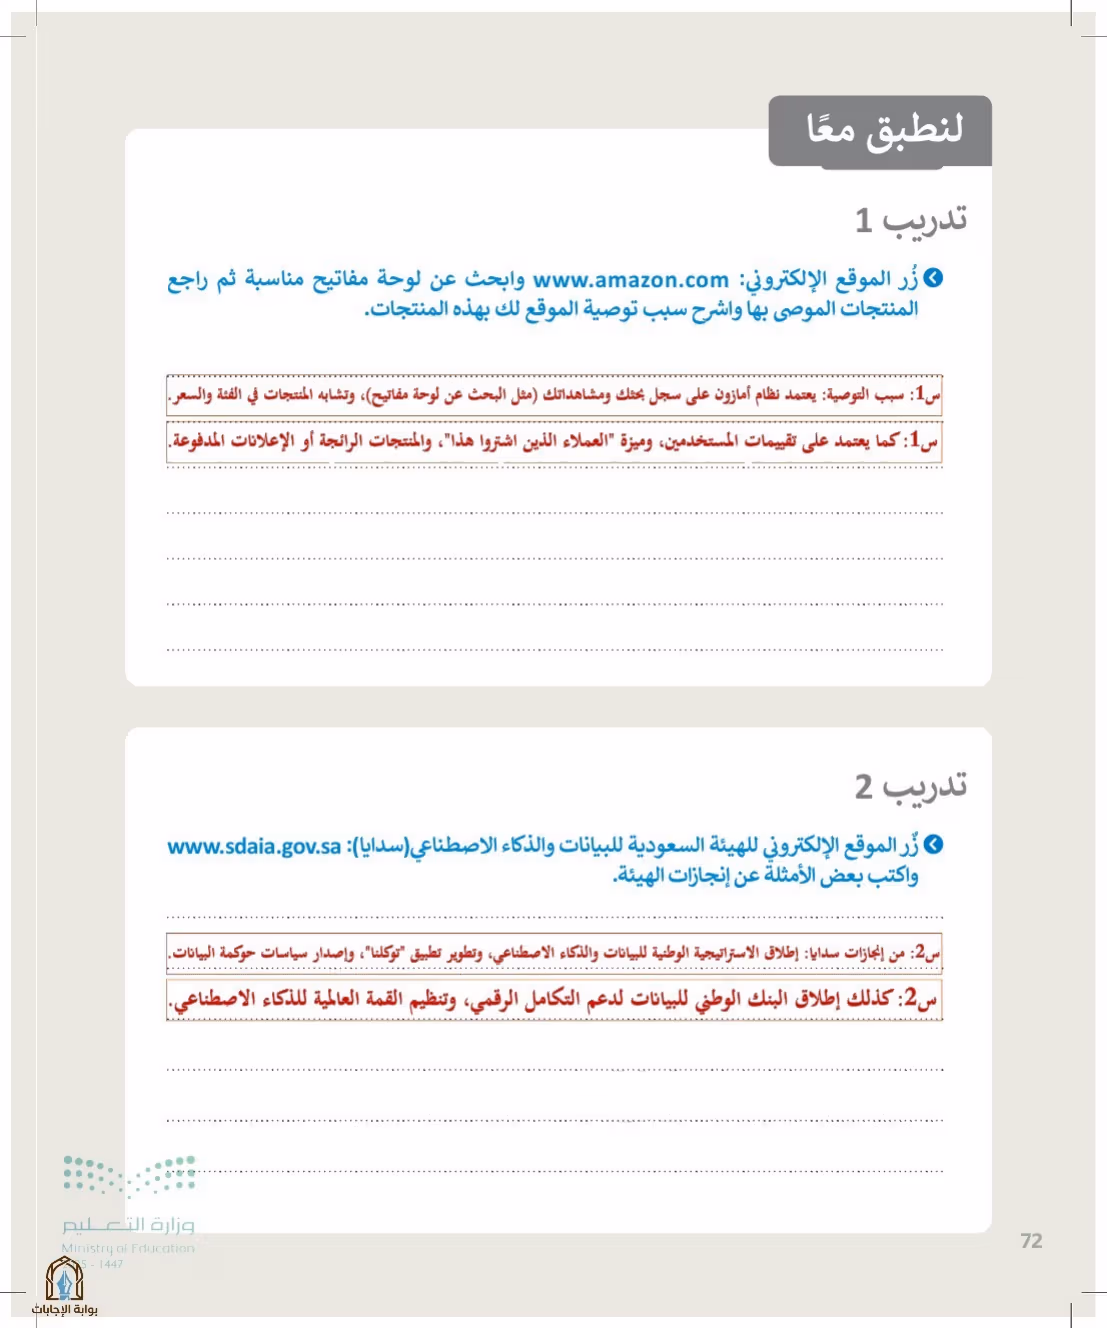 لنطبق معًا
تدريب 1
زُر الموقع الإلكتروني: www.amazon.com وابحث عن لوحة مفاتيح مناسبة ثم راجع
المنتجات الموصى بها واشرح سبب توصية الموقع لك بهذه المنتجات.
س1: سبب التوصية: يعتمد نظام أمازون على سجل بحثك ومشاهداتك (مثل البحث عن لوحة مفاتيح)، وتشابه المنتجات في الفئة والسعر.
س1: كما يعتمد على تقييمات المستخدمين، وميزة "العملاء الذين اشتروا هذا"، والمنتجات الرائجة أو الإعلانات المدفوعة.
تدريب 2
زٌر الموقع الإلكتروني للهيئة السعودية للبيانات والذكاء الاصطناعي(سدايا): www.sdaia.gov.sa
واكتب بعض الأمثلة عن إنجازات الهيئة.
س2: من إنجازات سدايا: إطلاق الاستراتيجية الوطنية للبيانات والذكاء الاصطناعي، وتطوير تطبيق "توكلنا"، وإصدار سياسات حوكمة البيانات.
س2: كذلك إطلاق البنك الوطني للبيانات لدعم التكامل الرقمي، وتنظيم القمة العالمية للذكاء الاصطناعي.
وزارة التعليم
Ministry of Education
1447
72
بوابة الإجابات